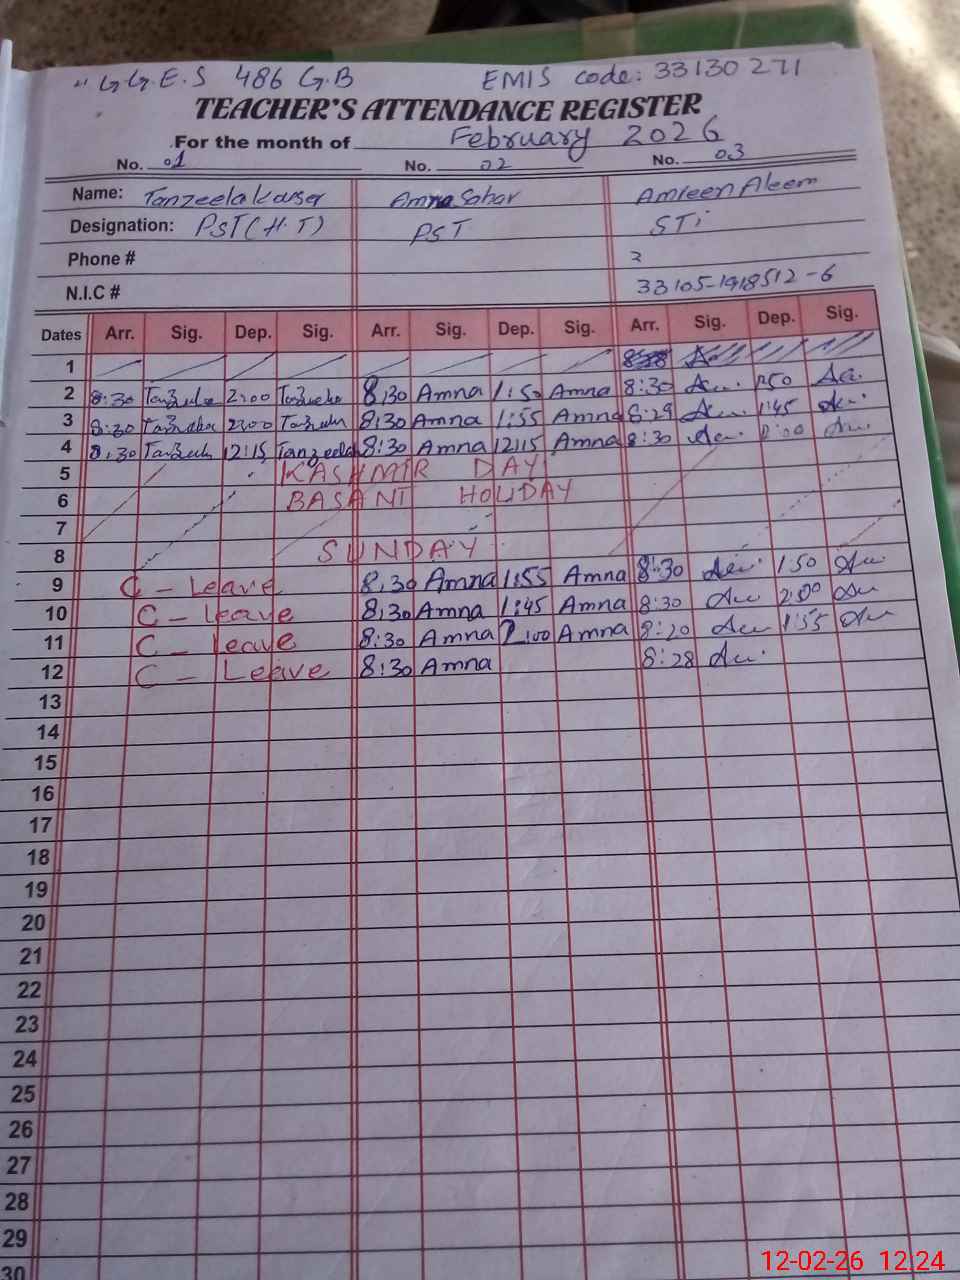 G.G.E.S 486 G.B EMIS code: 33130271
TEACHER'S ATTENDANCE REGISTER
For the month of February 2026
No. 01 No. 02 No. 03
Name: Tanzeela Kauser Amna Sahar Amreen Aleem
Designation: PST (H.T) PST STi
Phone #
N.I.C # 33105-1918512-6
Dates Arr. Sig. Dep. Sig. Arr. Sig. Dep. Sig. Arr. Sig. Dep. Sig.
1
2 8:30 2:00 8:30 Amna 1:50 Amna 8:30 1:50
3 8:30 2:00 8:30 Amna 1:55 Amna 8:29 1:45
4 8:30 12:15 Tanzeela 8:30 Amna 12:15 Amna 8:30
5 KASHMIR DAY
6 BASANT HOLIDAY
7
8 SUNDAY
9 C - Leave 8:30 Amna 1:55 Amna 8:30 1:50
10 C - Leave 8:30 Amna 1:45 Amna 8:30 2:00
11 C - Leave 8:30 Amna 2:00 Amna 8:20 1:55
12 C - Leave 8:30 Amna 8:28
13
14
15
16
17
18
19
20
21
22
23
24
25
26
27
28
29
30
12-02-26 12:24